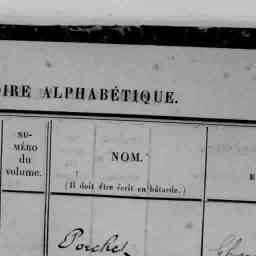 OIRE ALPHABÉTIQUE.
NU-
MÉRO
du
volume.
NOM.
(Il doit être écrit en bâtarde.)
Porchet